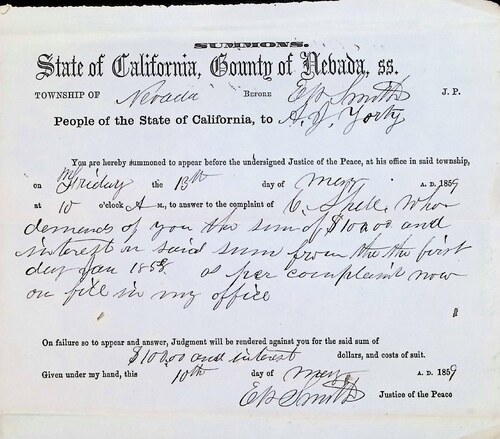 SUMMONS.
State of California, County of Nevada, ss.
TOWNSHIP OF Nevada BEFORE E W Smith J. P.
People of the State of California, to A. Y. Yorty
You are hereby summoned to appear before the undersigned Justice of the Peace, at his office in said township,
on Friday the 13th day of May A. D. 1859
at 10 o'clock A M., to answer to the complaint of C. Spell. who
demands of you the sum of $100.00 and
interest on said sum from the the first
day Jan 1858. as per complaint now
on file in my office
On failure so to appear and answer, Judgment will be rendered against you for the said sum of
$100.00 and interest dollars, and costs of suit.
Given under my hand, this 10th day of May A. D. 1859
E W Smith Justice of the Peace